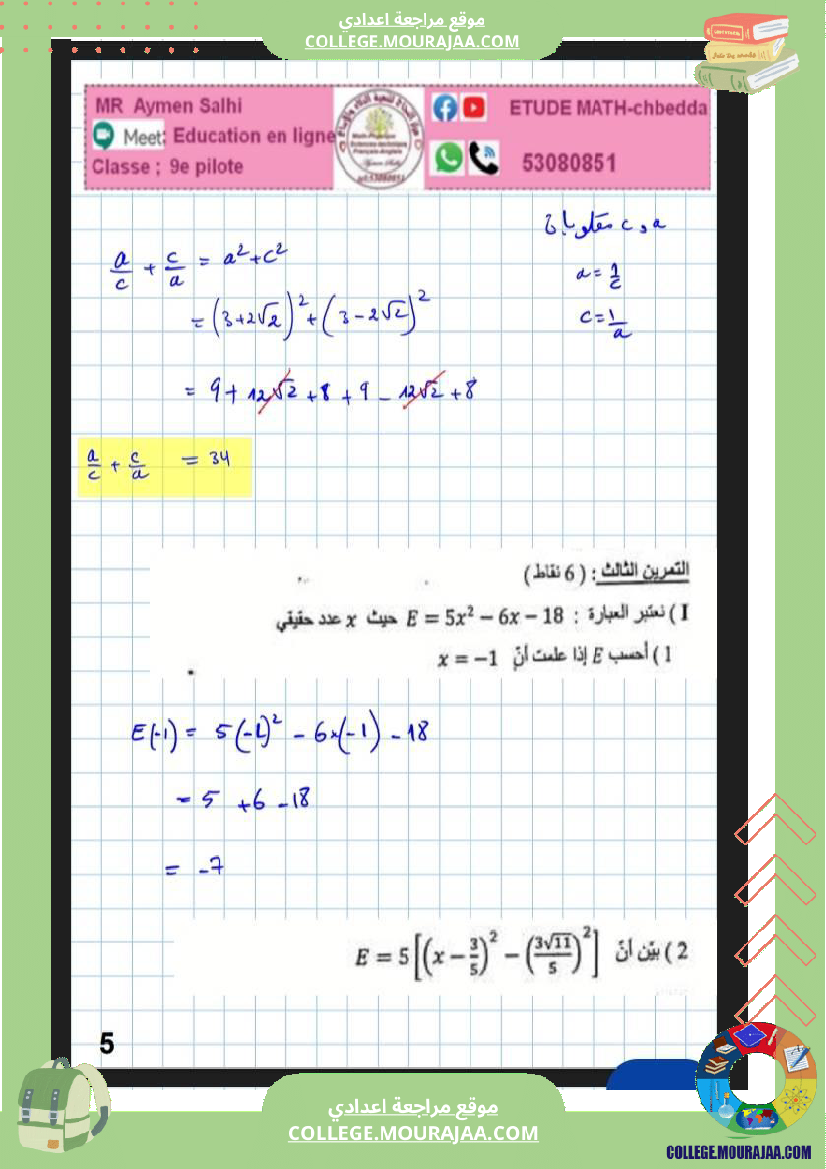 موقع مراجعة اعدادي
COLLEGE.MOURAJAA.COM
MR Aymen Salhi
Meet: Education en ligne
Classe ; 9e pilote
ETUDE MATH-chbedda
53080851
a و c مقلوبان
a/c + c/a = a² + c²
a = 1/c
= (3+2√2)² + (3-2√2)²
c = 1/a
= 9 + 12√2 + 8 + 9 - 12√2 + 8
a/c + c/a = 34
التمرين الثالث : ( 6 نقاط )
I ) نعتبر العبارة : E = 5x² − 6x − 18 حيث x عدد حقيقي
1 ) أحسب E إذا علمت أنّ x = −1
E(-1) = 5(-1)² - 6×(-1) - 18
= 5 + 6 - 18
= -7
2 ) بيّن أنّ E = 5[(x − 3/5)² − (3√11/5)²]
5
موقع مراجعة اعدادي
COLLEGE.MOURAJAA.COM
COLLEGE.MOURAJAA.COM